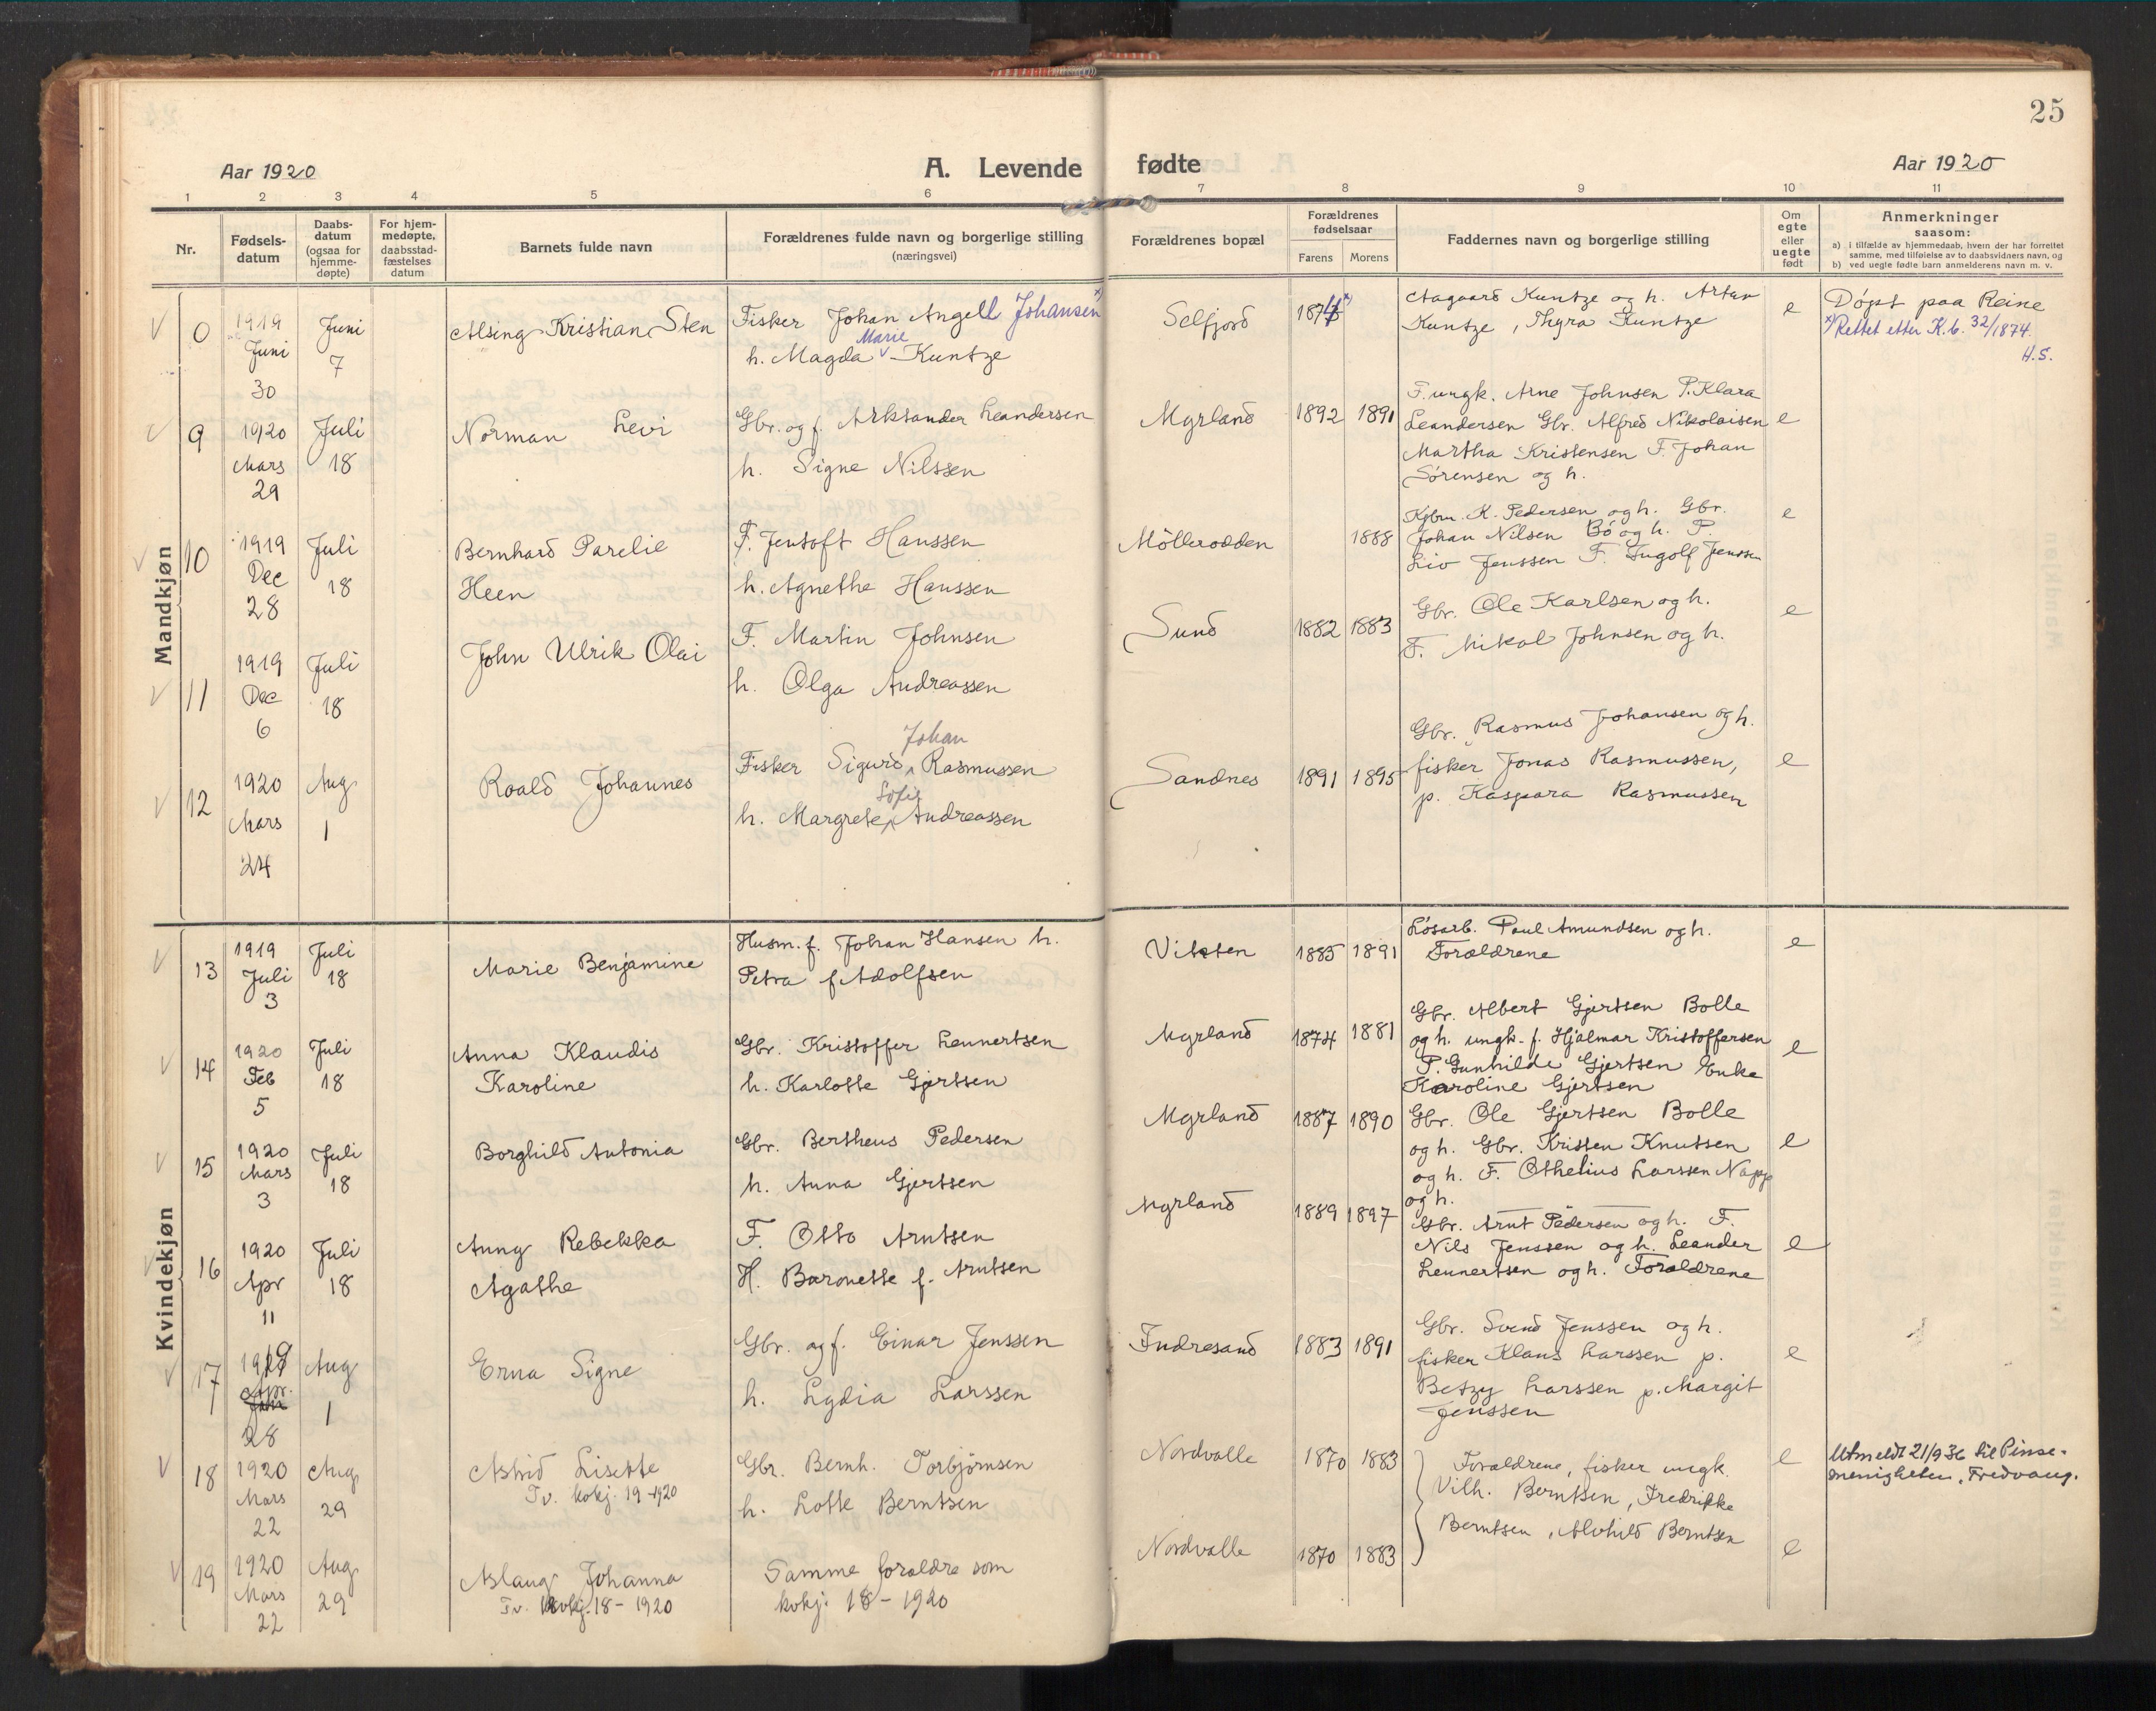 25
Aar 1920
A. Levende fødte
Aar 1920
1 2 3 4 5 6 7 8 9 10 11
Nr.
Fødsels-
datum
Daabs-
datum
(ogsaa for
hjemme-
døpte)
For hjem-
medøpte,
daabsstad-
fæstelses
datum
Barnets fulde navn
Forældrenes fulde navn og borgerlige stilling
(næringsvei)
Forældrenes bopæl
Forældrenes
fødselsaar
Farens
Morens
Faddernes navn og borgerlige stilling
Om
egte
eller
uegte
født
Anmerkninger
saasom:
a) i tilfælde av hjemmedaab, hvem der har forrettet
samme, med tilføielse av to daabsvidners navn, og
b) ved uegte fødte barn anmelderens navn m. v.
Mandkjøn
0
1919
Juni
30
Juni
7
Alsing Kristian Sten
Fisker Johan Angell Johansen x)
Marie
h. Magda Kuntze
Selfjord
1874 x)
Aagaard Kuntze og h. Artur
Kuntze, Thyra Kuntze
e
Döpt paa Reine
x) Rettet etter K.b. 32/1874.
H.S.
9
1920
Mars
29
Juli
18
Norman Levi
Gbr. og f. Arksander Leandersen
h. Signe Nilssen
Myrland
1892 1891
F. ungk. Arne Johnsen P. Klara
Leandersen Gbr. Alfred Nikolaisen
Martha Kristensen F. Johan
Sörensen og h.
e
10
1919
Dec
28
Juli
18
Bernhard Parelie
Heen
F. Jentoft Hanssen
h. Agnethe Hanssen
Möllerodden
1888
Kjbm. K. Pedersen og h. Gbr.
Johan Nilsen Bö og h. P
Liv Jenssen F. Ingolf Jenssen
e
11
1919
Dec
6
Juli
18
John Ulrik Olai
F. Martin Johnsen
h. Olga Andreassen
Sund
1882 1883
Gbr. Ole Karlsen og h.
F. Mikal Johnsen og h.
e
12
1920
Mars
24
Aug
1
Roald Johannes
Johan
Fisker Sigurd Rasmussen
Sofie
h. Margrete Andreassen
Sandnes
1891 1895
Gbr. Rasmus Johansen og h.
fisker Jonas Rasmussen,
p. Kaspara Rasmussen
e
Kvindekjøn
13
1919
Juli
3
Juli
18
Marie Benjamine
Husm. f. Johan Hansen h.
Petra f Adolfsen
Vikten
1885 1891
Lösarb. Paul Amundsen og h.
Forældrene
e
14
1920
Feb
5
Juli
18
Anna Klaudis
Karoline
Gbr. Kristoffer Lennertsen
h. Karlotte Gjertsen
Myrland
1874 1881
Gbr. Albert Gjertsen Bolle
og h. ungk. f. Hjalmar Kristoffersen
P. Gunhilde Gjertsen Enke
Karoline Gjertsen
e
15
1920
Mars
3
Juli
18
Borghild Antonia
Gbr. Bertheus Pedersen
h. Anna Gjertsen
Myrland
1887 1890
Gbr. Ole Gjertsen Bolle
og h. Gbr. Kristen Knutsen
og h. F. Othelius Larssen Napp
og h.
e
16
1920
Apr
11
Juli
18
Auny Rebekka
Agathe
F. Otto Arntsen
H. Baronette f. Arntsen
Myrland
1889 1897
Gbr. Arnt Pedersen og h. F.
Nils Jenssen og h. Leander
Lennertsen og h. Forældrene
e
17
1919
Apr.
28
Aug
1
Erna Signe
Gbr. og f. Einar Jenssen
h. Lydia Larssen
Indresand
1883 1891
Gbr. Svend Jenssen og h.
fisker Klaus Larssen p.
Betzy Larssen p. Margit
Jenssen
e
18
1920
Mars
22
Aug
29
Astrid Lisette
Tv. kvkj. 19-1920
Gbr. Bernh. Torbjörnsen
h. Lotte Berntsen
Nordvalle
1870 1883
Forældrene, fisker ungk.
Vilh. Berntsen, Fredrikke
Berntsen, Alvhild Berntsen
e
Utmeldt 21/9 36 til Pinse-
menigheten, Fredvang.
19
1920
Mars
22
Aug
29
Aslaug Johanna
Tv. kvkj. 18 - 1920
Samme forældre som
kvkj. 18 - 1920
Nordvalle
1870 1883
e